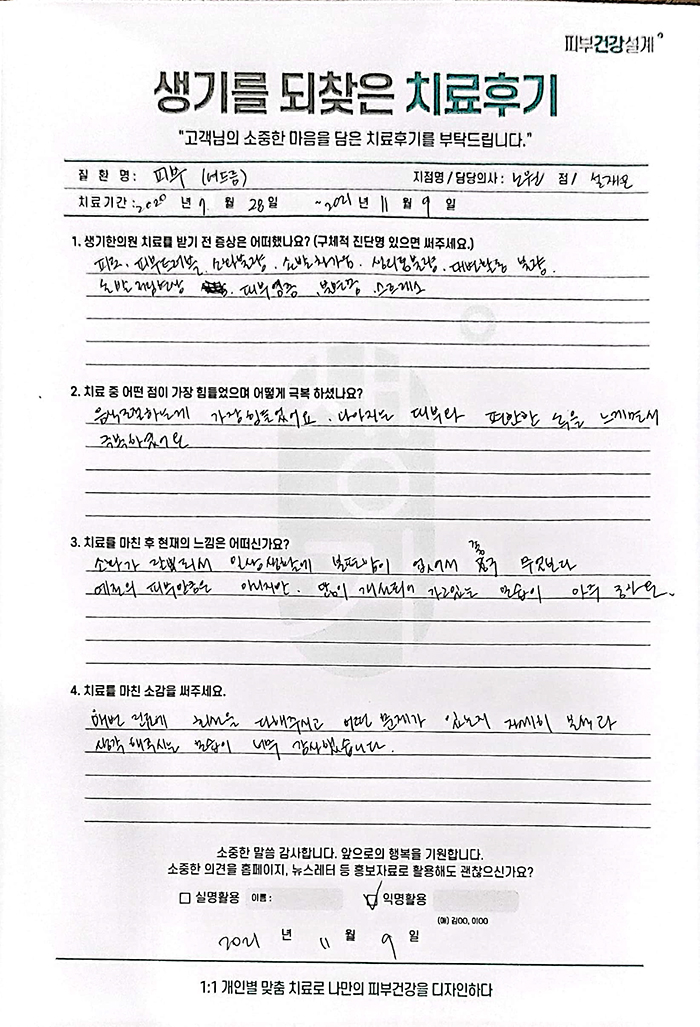 피부건강설계
생기를 되찾은 치료후기
"고객님의 소중한 마음을 담은 치료후기를 부탁드립니다."
질 환 명 : 피부 (여드름) 지점명 / 담당의사 : 노원 점 / 설재은
치료기간 : 2020 년 7 월 28 일 ~ 2021 년 11 월 9 일
1. 생기한의원 치료를 받기 전 증상은 어떠했나요? (구체적 진단명 있으면 써주세요.)
피로. 피부트러블. 소화불량. 손발차가움. 생리불량. 대변활동 불량.
피부염증 불면증 스트레스
2. 치료 중 어떤 점이 가장 힘들었으며 어떻게 극복 하셨나요?
음식조절하는게 가장 힘들었어요. 나아지는 피부와 편안한 속을 느끼면서
극복하였어요
3. 치료를 마친 후 현재의 느낌은 어떠신가요?
소화가 잘 일상생활에 불편함이 없어서 무엇보다
예전의 피부만큼은 아니지만. 많이 개선되어 가고있는 모습이 아주 좋아요.
4. 치료를 마친 소감을 써주세요.
매번 진료에 최선을 다해주시고 어떤 문제가 있는지 자세히
생각해주시는 모습이 너무 감사했습니다.
소중한 말씀 감사합니다. 앞으로의 행복을 기원합니다.
소중한 의견을 홈페이지, 뉴스레터 등 홍보자료로 활용해도 괜찮으신가요?
실명활용 이름 : 익명활용
(예) 김OO, 이OO
2021 년 11 월 9 일
1:1 개인별 맞춤 치료로 나만의 피부건강을 디자인하다